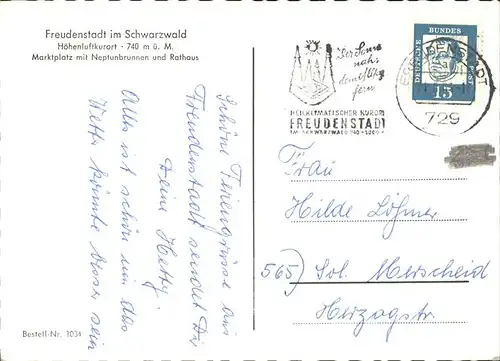 Freudenstadt im Schwarzwald
Höhenluftkurort - 740 m ü. M.
Marktplatz mit Neptunbrunnen und Rathaus
Schöne Feriengrüsse aus
Freudenstadt sendet Dir
Deine Hetty.
Alles ist schön nur das
Wetter könnte besser sein
Bestell-Nr. 1034
Der Sonne
nah,
dem Alltag
fern
HEILKLIMATISCHER KURORT
FREUDENSTADT
IM SCHWARZWALD 740-1000 m
FREUDENSTADT
729
DEUTSCHE BUNDESPOST
15
Frau
Hilde Löhmer
565) Sol. Merscheid
Herzogstr.